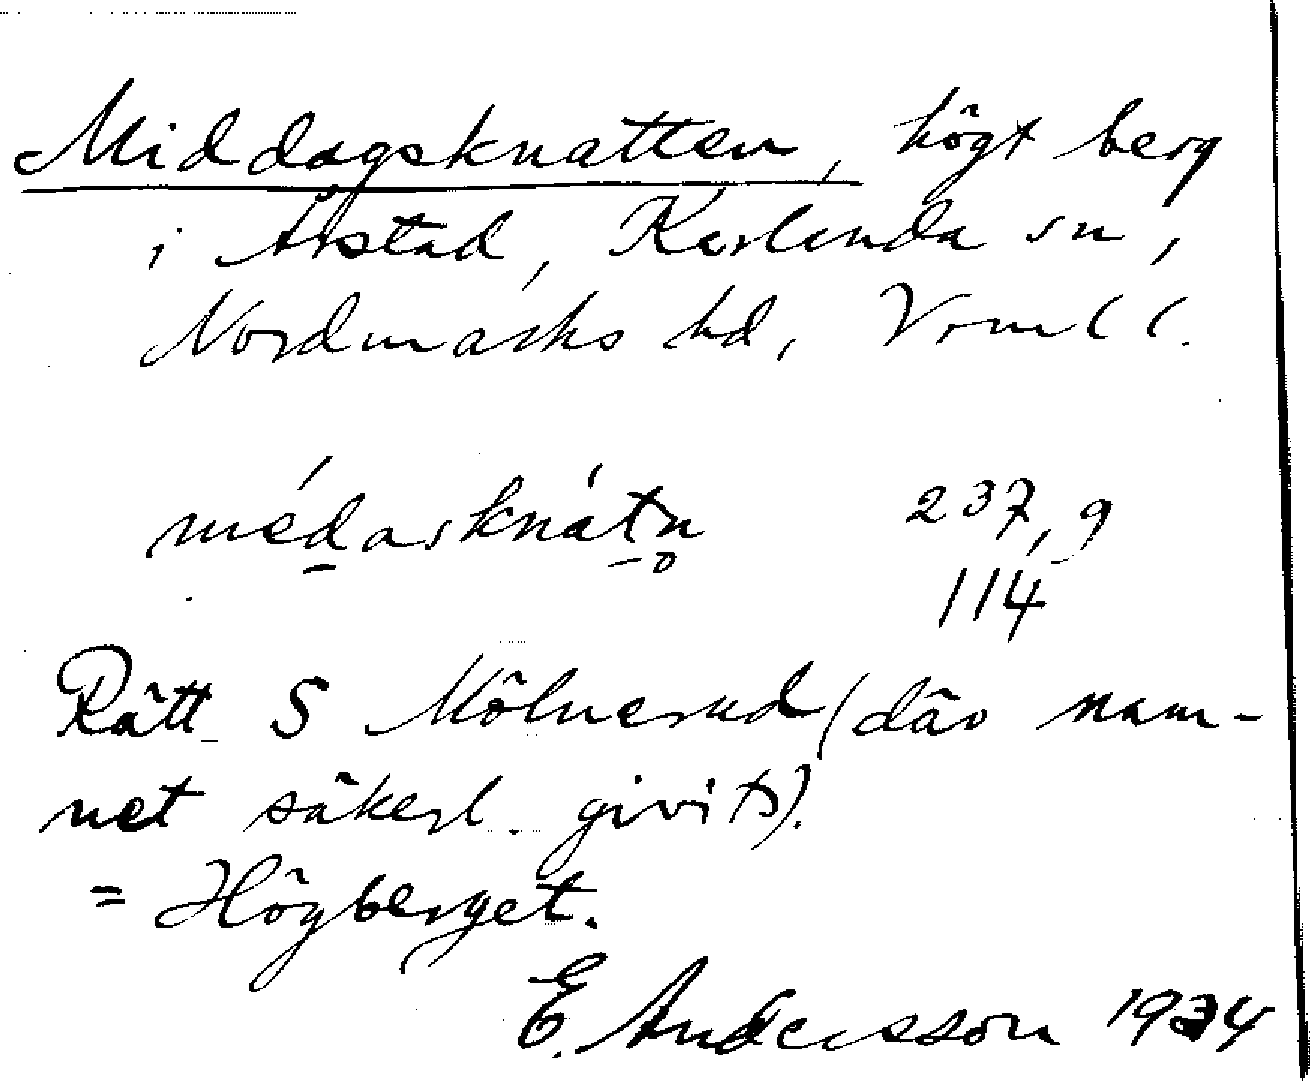 Middagsknatten, högt berg
i Årstad, Karlanda sn,
Nordmarks hd, Vrml l.
médasknátn̥ 237,9
114
Rätt S Mölnerud (där nam-
net säkerl. givits).
= Högberget.
E. Andersson 1934